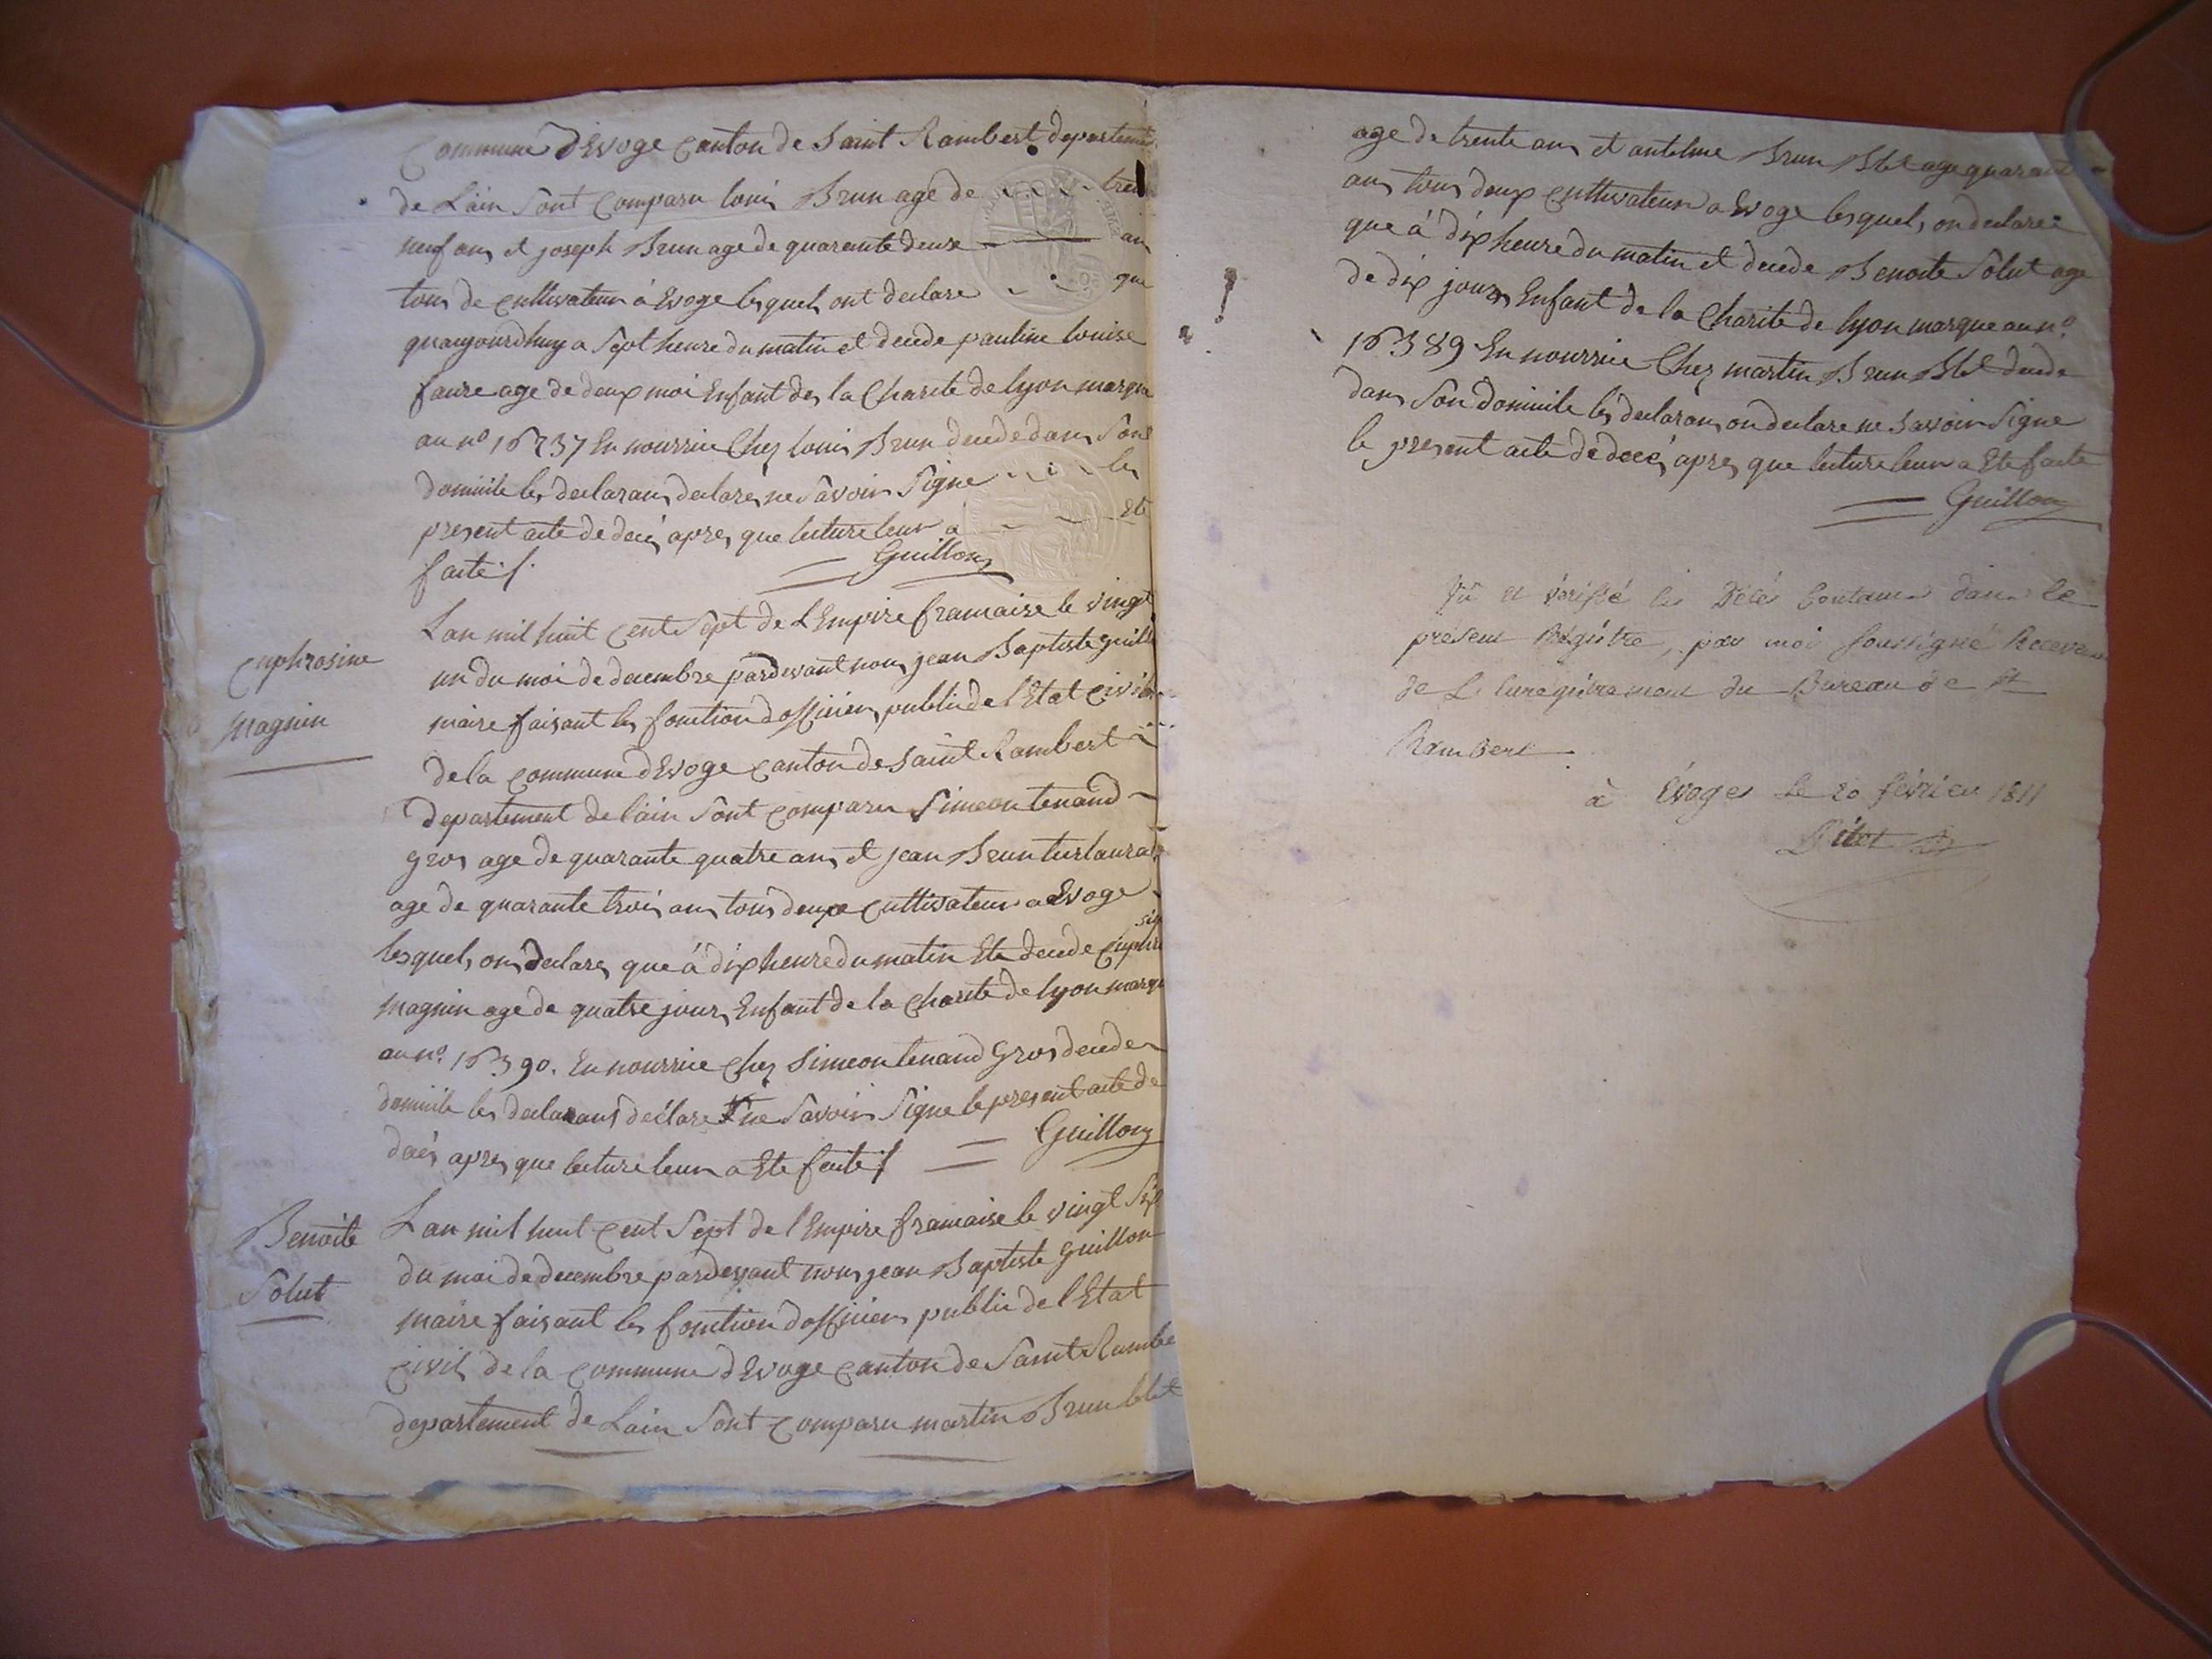 Commune d'Evoge Canton de Saint Rambert departement
de Lain sont comparu louis Brun age de
neuf ans et joseph Brun age de quarante deuse ans
tous de cultivateur à Evoge lesquels ont declare que
quaujourdhuy a sept heure du matin et decede pauline louise
faure age de deux moi Enfant de la Charite de lyon marque
au no 16237 En nourrice Chez louis Brun decede dans son
domicile les declarans declares ne savoir signe le
present acte de deces apres que lecture leur à Ete
faite /.
Guillon
Euphrosine
Magnin
Lan mil huit cent sept de l'Empire framaise le vingt
un du moi de decembre pardevant nous jean Baptiste guillon
maire faisant les fonction dofficier public de l'Etat civil
de la commune d'Evoge canton de saint Rambert
departement de lain sont comparu simeon tenand
gros age de quarante quatre ans et jean Brun
age de quarante trois ans tous deux cultivateur a Evoge
lesquels ons declares que à dix heure du matin Ete decede Euphro
sin
magnin age de quatre jours Enfant de la charite de lyon marque
au no. 16390. En nourrice Chez simeon tenand Gros decede
domicile les declarans déclare ne savoir signe le present acte de
deces apres que lecture leur a Ete faite /
Guillon
Benoite
Solut
Lan mil huit cent sept de l'Empire framaise le vingt six
du moi de decembre pardevant nous jean Baptiste guillon
maire faisant les fonction dofficier public de l'Etat
civil de la commune d'Evoge canton de Saint Rambe
departement de Lain sont comparu martin Brun blet
age de trente ans et antelme Brun Blet age quarante
ans tous deux cultivateur a Evoge lesquels on declare
que à dix heure du matin et decede Benoite Solut age
de dix jours Enfant de la Charite de lyon marque au no.
16389 En nourrice Chez martin Brun Blet decede
dans son domicile les declarans on declare ne savoir signe
le present acte de deces apres que lecture leur a Ete faite
Guillon
Vu et vérifié les Décés contenus dans le
présent Régistre, par moi soussigné Receveur
de L'Enregistrement du Bureau de St
Rambert.
à Évoges le 20 février 1811